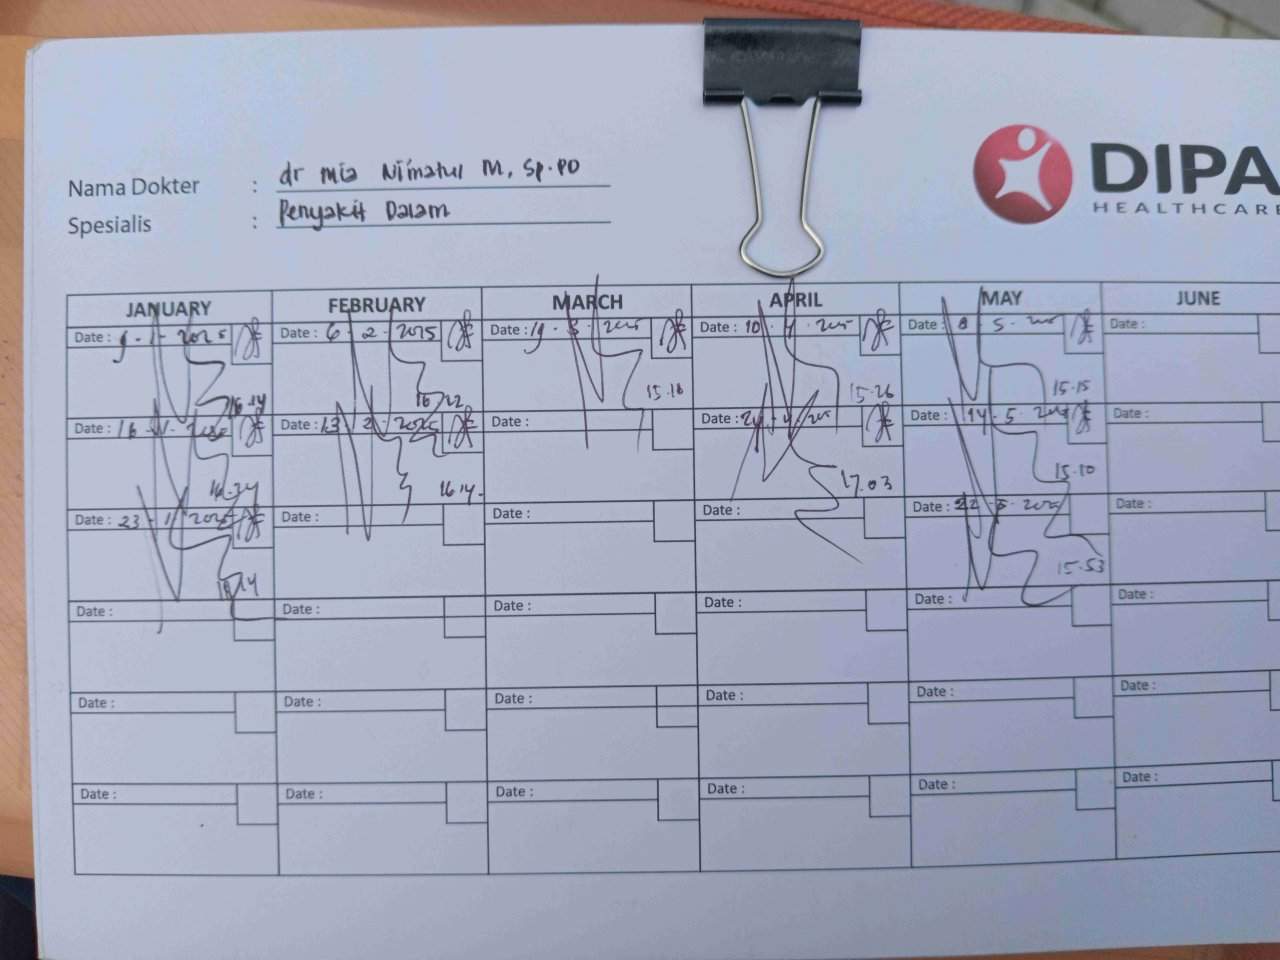 DIPA
HEALTHCARE
Nama Dokter : dr mia Ni'matul M, Sp.PD
Spesialis : Penyakit Dalam
JANUARY FEBRUARY MARCH APRIL MAY JUNE
Date : 9-1-2025 Date : 6-2-2025 Date : 19-3-2025 Date : 10-4-2025 Date : 8-5-2025 Date :
16.22 15.18 15.26 15.15
Date : 16-1-2025 Date : 13-2-2025 Date : Date : 24-4-2025 Date : 14-5-2025 Date :
16.34 16.14 17.03 15.10
Date : 23-1-2025 Date : Date : Date : Date : 22-5-2025 Date :
15.53
Date : Date : Date : Date : Date : Date :
Date : Date : Date : Date : Date : Date :
Date : Date : Date : Date : Date : Date :